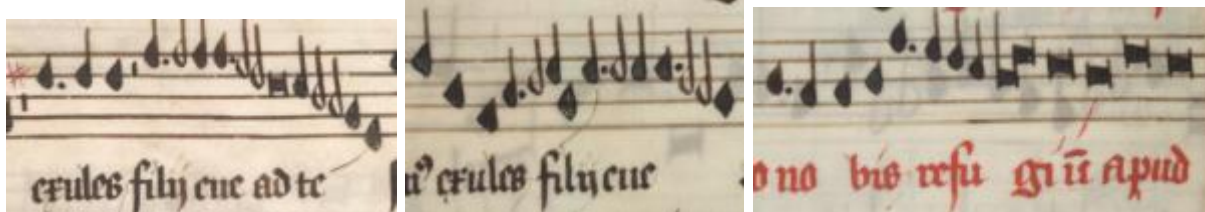 exules filij eue ad te
exules filij eue
o no bis refu gi ū apud